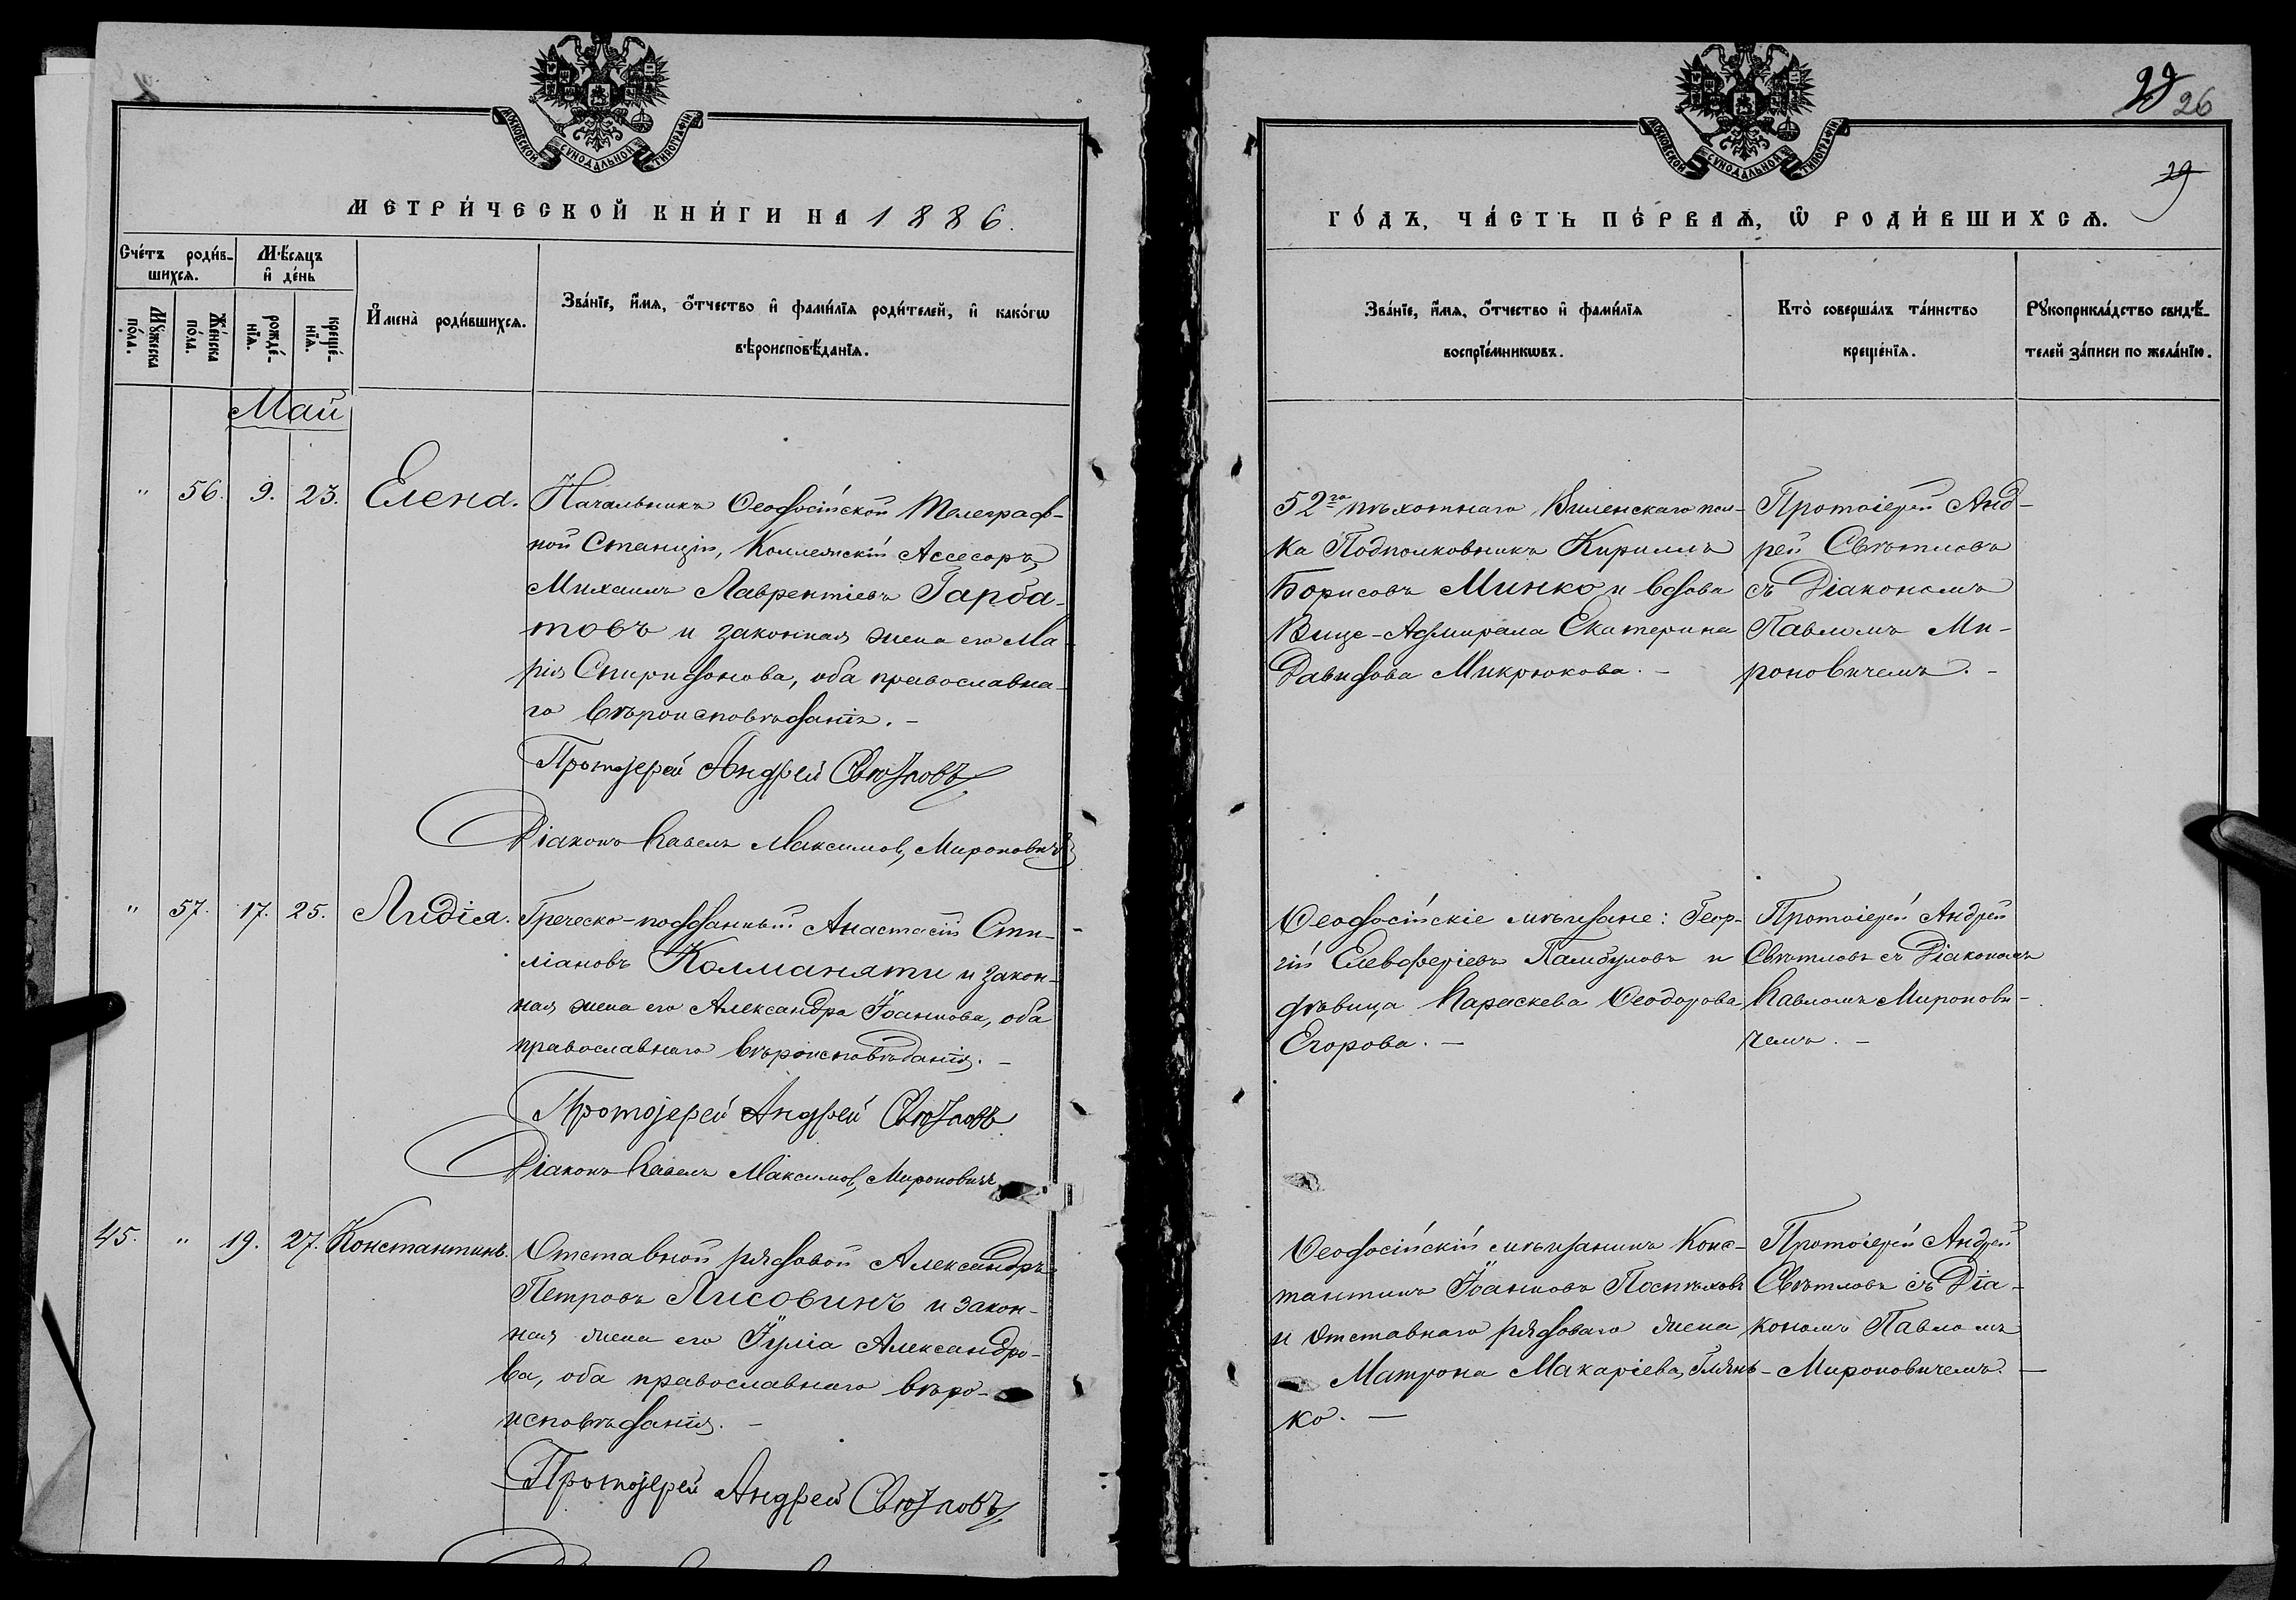 МОСКОВСКОЙ СУНОДАЛЬНОЙ ТИПОГРАФІИ
МЕТРИ́ЧЕСКОЙ КНИ́ГИ НА 1886.
Сче́тъ роди́в-
шихсѧ.
Мѣ́сѧцъ
и҆ де́нь
Мꙋ́жеска
по́ла.
Же́нска
по́ла.
рожде́-
нїѧ.
креще́-
нїѧ.
И҆мена̀ роди́вшихсѧ.
Зва́нїе, и҆́мѧ, ѻ҆́тчество и҆ фами́лїѧ роди́телей, и҆ како́гѡ
вѣроисповѣ́данїѧ.
Май
" 56. 9. 23. Елена. Начальникъ Ѳеодосійской Телеграф-
ной Станціи, Коллежскій Ассесоръ,
Михаилъ Лаврентіевъ Гарба-
товъ и законная жена его Ма-
рія Спиридонова, оба православна-
го вѣроисповѣданія. –
Протоіерей Андрей Свѣтловъ
Діаконъ Павелъ Максимов, Мироновичъ
" 57. 17. 25. Лидія. Греческо-подданный Анастасій Сти-
ліановъ Калманяти и закон-
ная жена его Александра Іоаннова, оба
православнаго вѣроисповѣданія. –
Протоіерей Андрей Свѣтловъ
Діаконъ Павелъ Максимов, Мироновичъ
45. " 19. 27. Константинъ. Отставной рядовой Александръ
Петровъ Лисовинъ и закон-
ная жена его Іулія Александро-
ва, оба православнаго вѣро-
исповѣданія. –
Протоіерей Андрей Свѣтловъ
МОСКОВСКОЙ СУНОДАЛЬНОЙ ТИПОГРАФІИ
26
29
ГО́ДЪ, ЧА́СТЬ ПЕ́РВАѦ, Ѡ҆ РОДИ́ВШИХСѦ.
Зва́нїе, и҆́мѧ, ѻ҆́тчество и҆ фами́лїѧ
воспрїе́мникѡвъ.
Кто̀ соверша́лъ та́инство
креще́нїѧ.
Рꙋкоприкла́дство свидѣ́-
телей за́писи по жела́нїю.
52го пѣхотнаго Виленскаго пол-
ка Подполковникъ Кириллъ
Борисовъ Минко и вдова
Вице-Адмирала Екатерина
Давидова Микрюкова. –
Протоіерей Анд-
рей Свѣтловъ
съ Діакономъ
Павломъ Ми-
роновичемъ. –
Ѳеодосійскіе мѣщане: Геор-
гій Елевферіевъ Памбуловъ и
дѣвица Параскева Ѳеодорова
Егорова. –
Протоіерей Андрей
Свѣтловъ съ Діакономъ
Павломъ Миронови-
чемъ. –
Ѳеодосійскій мѣщанинъ Конс-
тантинъ Іоанновъ Поспѣловъ
и отставнаго рядоваго жена
Матрона Макаріева
ко. –
Протоіерей Андрей
Свѣтловъ съ Діа-
кономъ Павломъ
Мироновичемъ. –